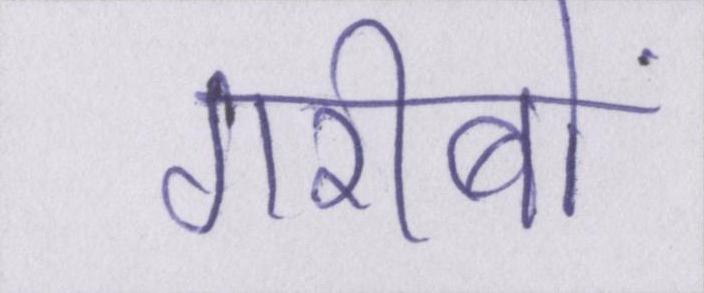 गरीबों